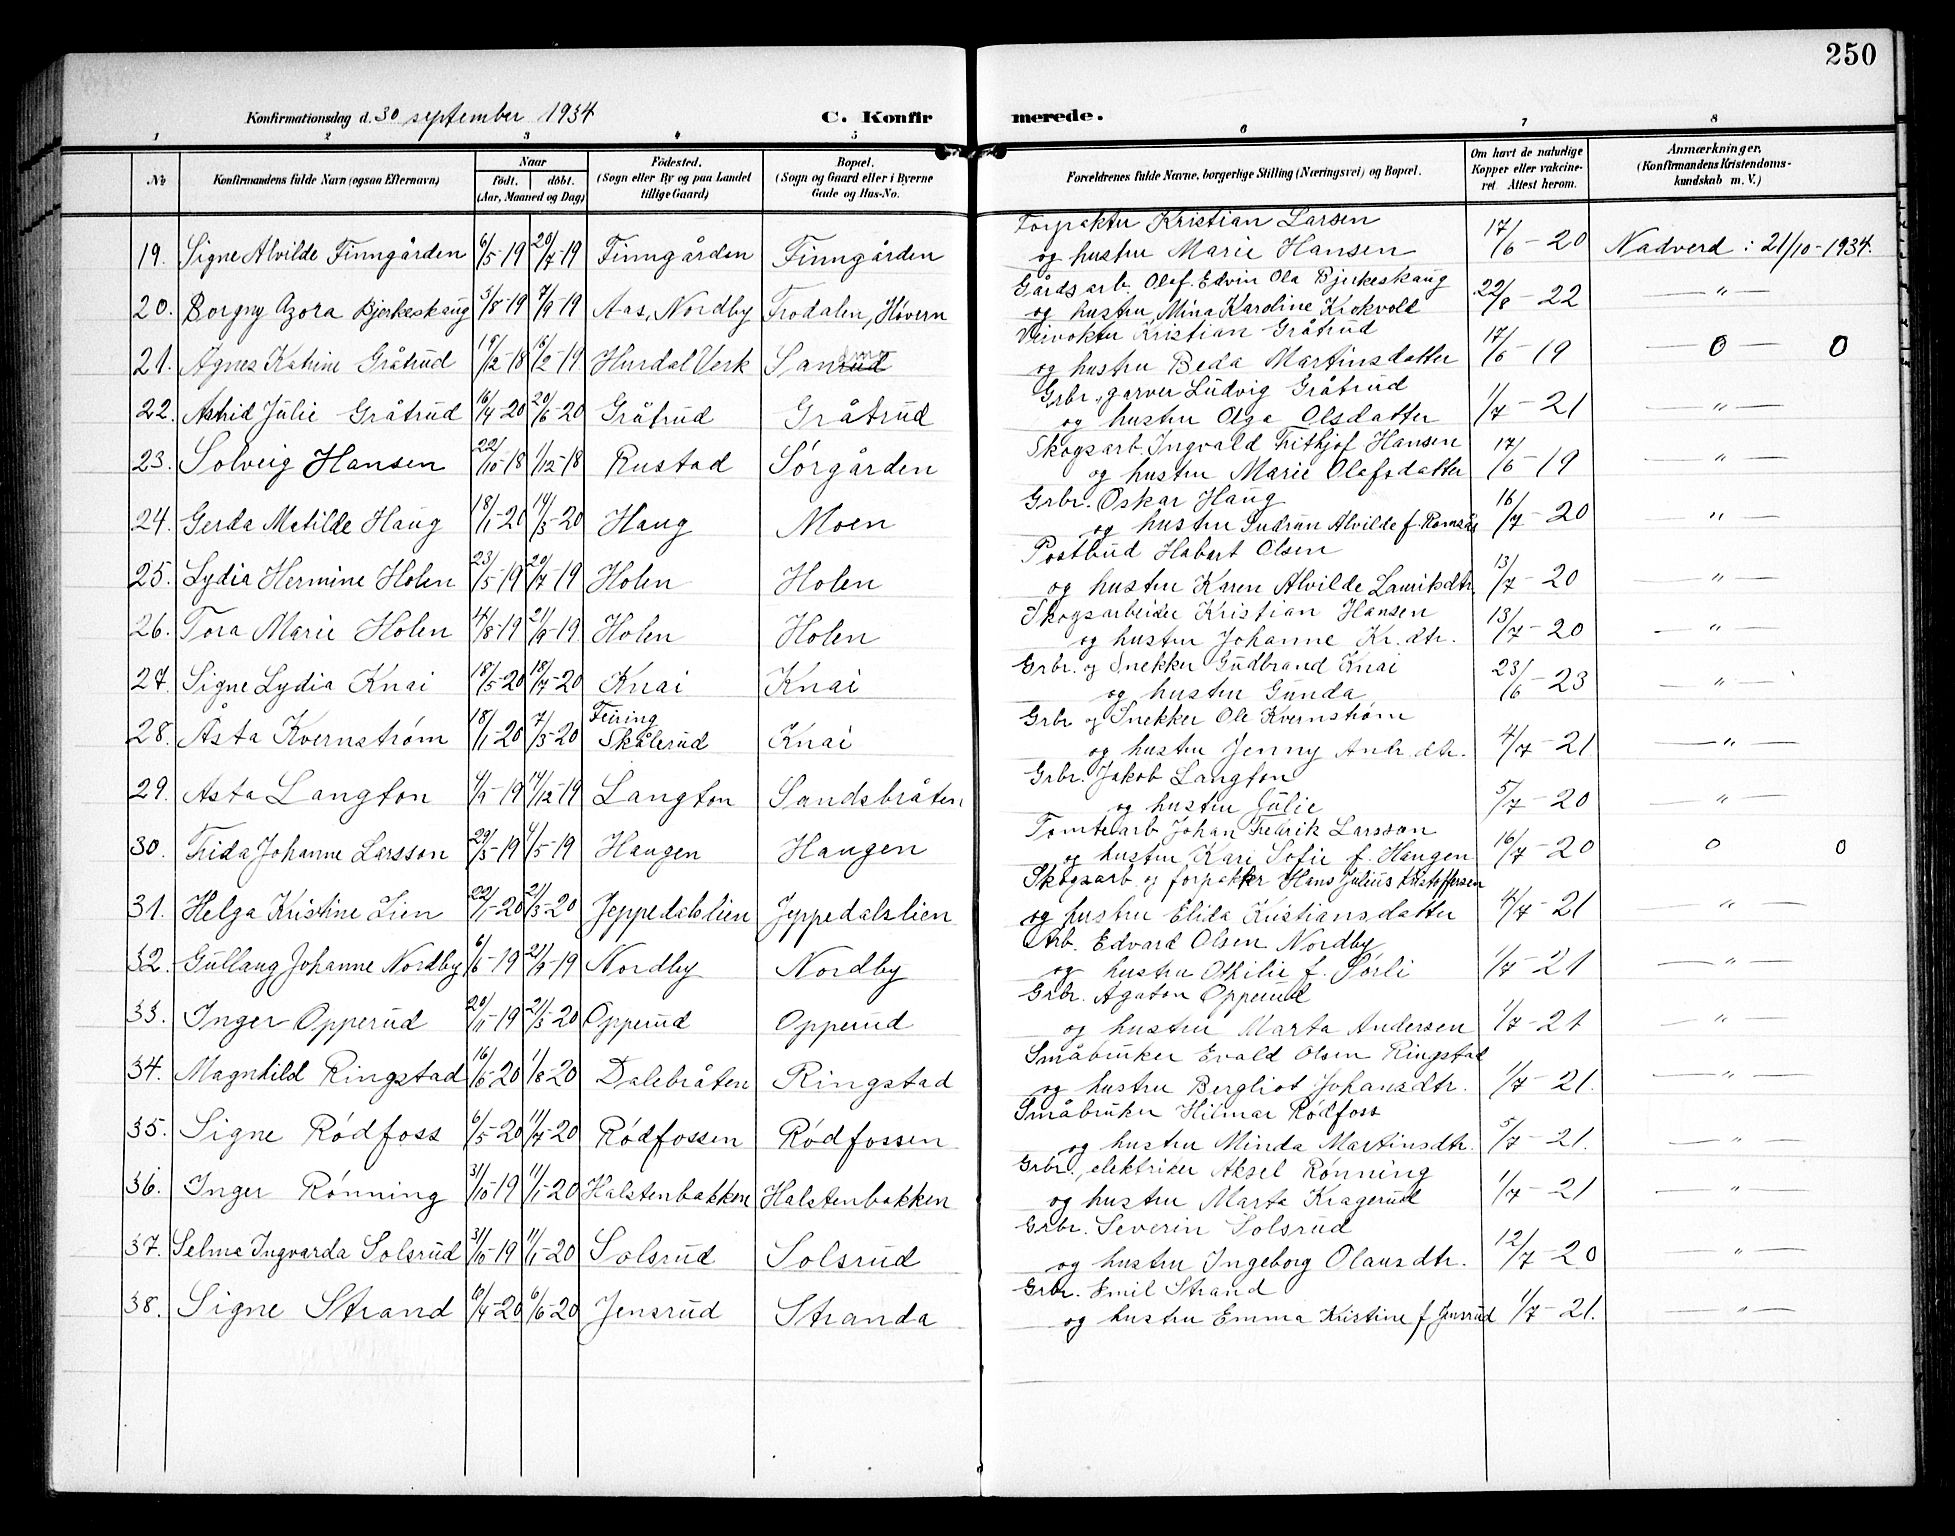 250
Konfirmationsdag d. 30 september 1934 C. Konfirmerede.
1 2 3 4 5 6 7 8
No Konfirmandens fulde Navn (ogsaa Efternavn) Naar født. døbt. (Aar, Maaned og Dag) Fødested. (Sogn eller By og paa Landet tillige Gaard) Bopæl. (Sogn og Gaard eller i Byerne Gade og Hus-No. Forældrenes fulde Navne, borgerlige Stilling (Næringsvei) og Bopæl. Om havt de naturlige Kopper eller vakcineret. Attest herom. Anmærkninger. (Konfirmandens Kristendomskundskab m. V.)
Forpakter Kristian Larsen
19. Signe Alvilde Finngården 6/5-19 20/7-19 Finngården Finngården og hustru Marie Hansen 17/6-20 Nadverd: 21/10-1934.
Gårdsarb. Olaf Edvin Ola Bjerkeskaug
20. Borgny Azora Bjerkeskaug 3/8-19 7/9-19 Aas, Nordby Trodalen, Høvern og hustru Mina Karoline Krokvold 22/8-22 — " —
Veivokter Kristian Gråtrud
21. Agnes Katrine Gråtrud 19/12-18 16/2-19 Hurdal Verk og hustru Beda Martinsdatter 17/6-19 — 0 — 0
Grbr., garver Ludvig Gråtrud
22. Astrid Julie Gråtrud 16/4-20 20/6-20 Gråtrud Gråtrud og hustru Olga Olsdatter 1/7-21 — " —
Skogsarb. Ingvald Fritkjof Hansen
23. Solveig Hansen 22/10-18 1/12-18 Rustad Sørgården og hustru Marie Olafsdatter 17/6-19 — " —
Grbr. Oskar Haug
24. Gerda Matilde Haug 18/1-20 14/3-20 Haug Moen og hustru Gudrun Alvilde f. Ramsås 16/7-20 — " —
Postbud Habart Olsen
25. Lydia Hermine Holen 23/5-19 20/7-19 Holen Holen og hustru Karen Alvilde Lauritsdtr. 13/7-20 — " —
Skogsarbeider Kristian Hansen
26. Tora Marie Holen 14/8-19 21/9-19 Holen Holen og hustru Johanne Kr. dtr. 13/7-20 — " —
Grbr. og Snekker Gudbrand Knai
27. Signe Lydia Knai 18/5-20 18/7-20 Knai Knai og hustru Gunda 23/6-23 — " —
Grbr og Snekker Ole Kvernstrøm
28. Åsta Kvernstrøm 18/1-20 7/3-20 Feiring Skålerud Knai og hustru Jenny Andr. dtr. 4/7-21 — " —
Grbr. Jakob Langton
29. Asta Langton 14/12-19 Langton Sandsbråten og hustru Julie 5/7-20 — " —
Tomtearb Johan Fredrik Larsson
30. Frida Johanne Larsson 29/3-19 4/5-19 Haugen Haugen og hustru Kari Sofie f. Haugen 16/7-20 0 0
Skogsarb. og forpakter Hans Julius Kristoffersen
31. Helga Kristine Lien 22/1-20 21/3-20 Jeppedalslien Jeppedalslien og hustru Elida Kristiansdatter 4/7-21 — " —
Arb. Edvard Olsen Nordby
32. Gullaug Johanne Nordby 6/6-19 21/9-19 Nordby Nordby og hustru Othilie f. Sørli 1/7-21 — " —
Grbr. Agaton Opperud
33. Inger Opperud 20/11-19 21/3-20 Opperud Opperud og hustru Marta Andersen 1/7-21 — " —
Småbruker Evald Olsen Ringstad
34. Magnhild Ringstad 16/6-20 1/8-20 Dalebråten Ringstad og hustru Bergliot Johansdtr. 1/7-21. — " —
Småbruker Hilmar Rødfoss
35. Signe Rødfoss 6/5-20 11/7-20 Rødfossen Rødfossen og hustru Minda Martinsdtr. 5/7-21. — " —
Grbr., elektriker Aksel Rønning
36. Inger Rønning 31/10-19 11/1-20 Halstenbakken Halstenbakken og hustru Marta Kragerud 1/7-21 — " —
Grbr. Severin Solsrud
37. Selma Ingvarda Solsrud 31/10-19 11/1-20 Solsrud Solsrud og hustru Ingeborg Olausdtr. 12/7-20 — " —
Grbr. Emil Strand
38. Signe Strand 6/4-20 6/6-20 Jensrud Stranda og hustru Emma Kristine f Jensrud 1/7-21. — " —